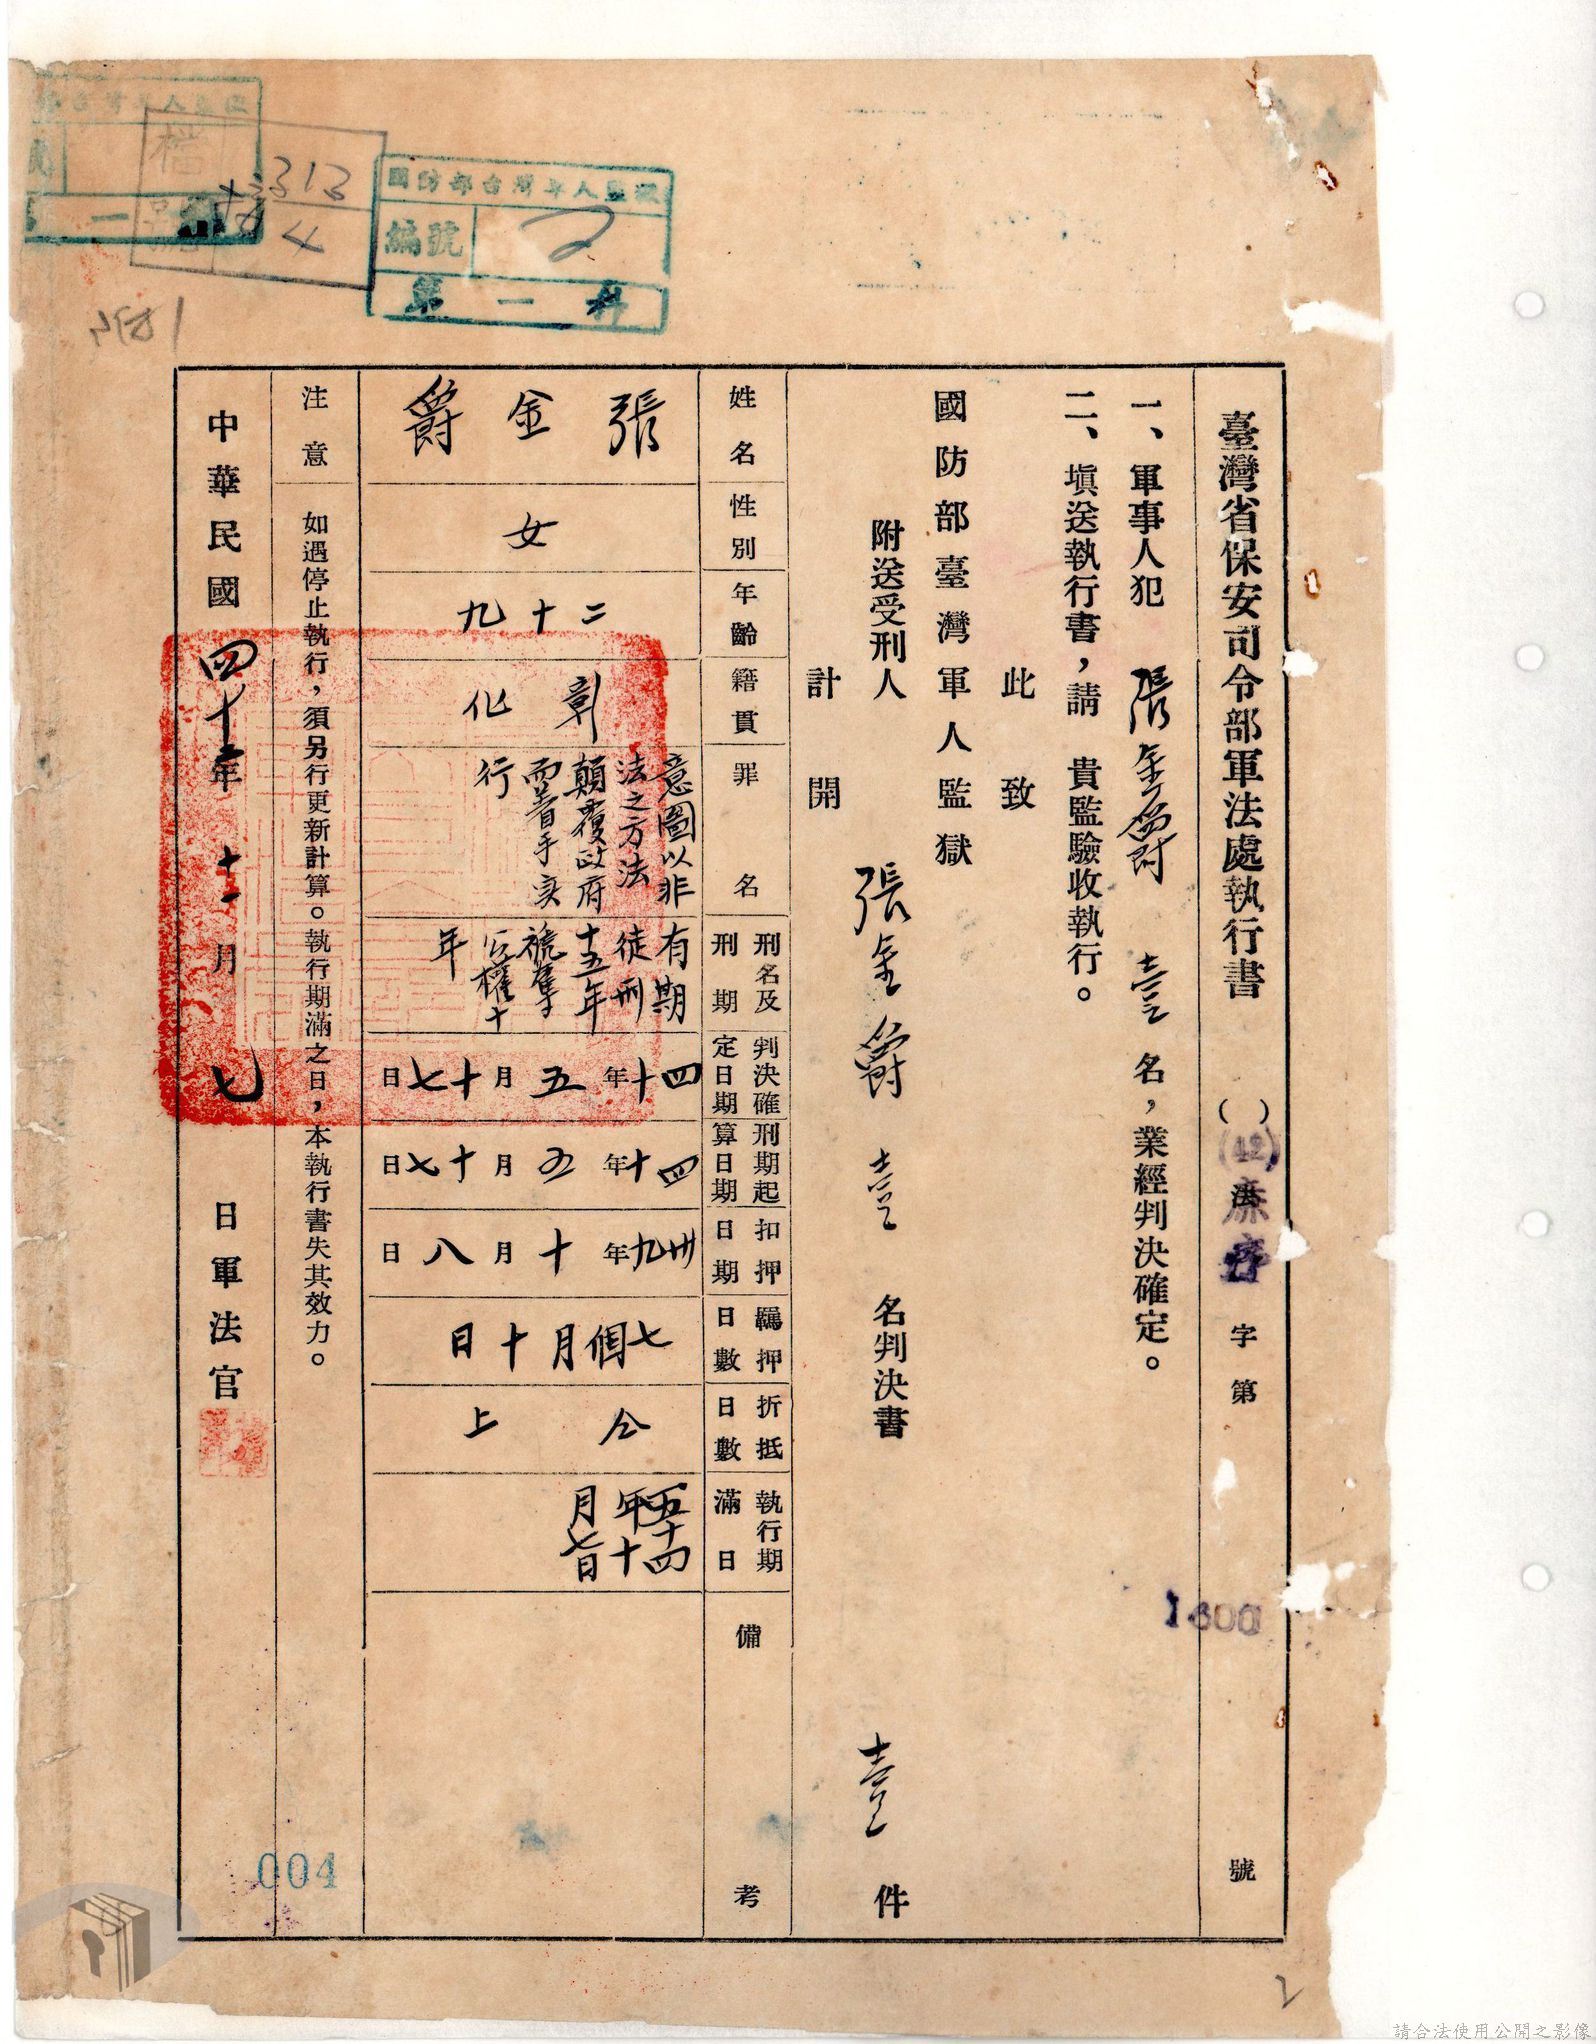 臺灣省保安司令部軍法處執行書　(　)(42)　法　字第1600號
一、軍事人犯　張金爵　壹名，業經判決確定。
二、填送執行書，請　貴監驗收執行。
此致
國防部臺灣軍人監獄
附送受刑人　張金爵　壹　名判決書　壹　件
計開
姓名　張金爵
性別　女
年齡　二十九
籍貫　彰化
罪名　意圖以非法之方法顛覆政府而着手实行
刑名及刑期　有期徒刑十五年褫奪公權十年
判決確定日期　四十年五月十七日
刑期起算日期　四十年五月十七日
扣押日期　卅九年十月八日
羈押日數　七個月十日
折抵日數　仝上
執行期滿日　五十四年十月七日
備考
注意　如遇停止執行，須另行更新計算。執行期滿之日，本執行書失其效力。
中華民國四十二年十一月七日軍法官
國防部台灣軍人監獄
編號　2
第一科
檔號
313
4
004
2
請合法使用公開之影像